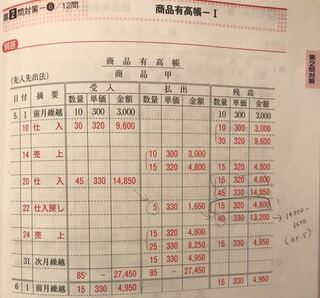 第2問対策−6/12問
商品有高帳−Ⅰ
解答
第2問対策
商品有高帳
(先入先出法) 商品甲
日付 摘要 受入 払出 残高
数量 単価 金額 数量 単価 金額 数量 単価 金額
5 1 前月繰越 10 300 3,000 10 300 3,000
10 仕入 30 320 9,600 10 300 3,000
30 320 9,600
14 売上 10 300 3,000
15 320 4,800 15 320 4,800
20 仕入 45 330 14,850 15 320 4,800
45 330 14,850
22 仕入戻し 5 330 1,650 15 320 4,800
40 330 13,200
24 売上 15 320 4,800
25 330 8,250 15 330 4,950
31 次月繰越 15 330 4,950
85 − 27,450 85 − 27,450
6 1 前月繰越 15 330 4,950 15 330 4,950
(45-5)